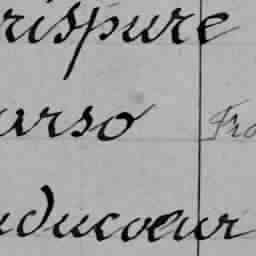 rispure
urso Fra
nducoeur